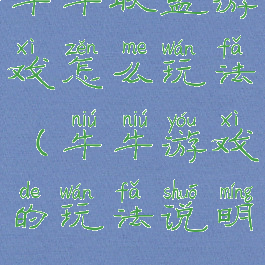 牛牛联盟游
xì zěn me wán fǎ
戏怎么玩法
niú niú yóu xì
(牛牛游戏
de wán fǎ shuō míng
的玩法说明